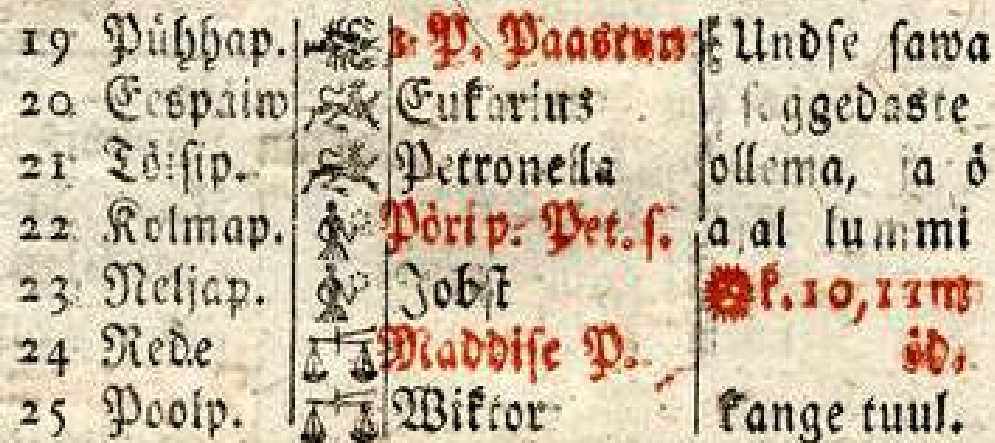 19 Pühhap. P. Paastus Undse sawa
20 Eespäiw Eukarius saggedaste
21 Töisip. Petronella ollema, ja ö
22 Kolmap. Pöri p. Pet. s. aal lummi
23 Neljap. Jobst k. 10, 11 m
24 Rede Maddise P. öd.
25 Poolp. Wiktor kange tuul.